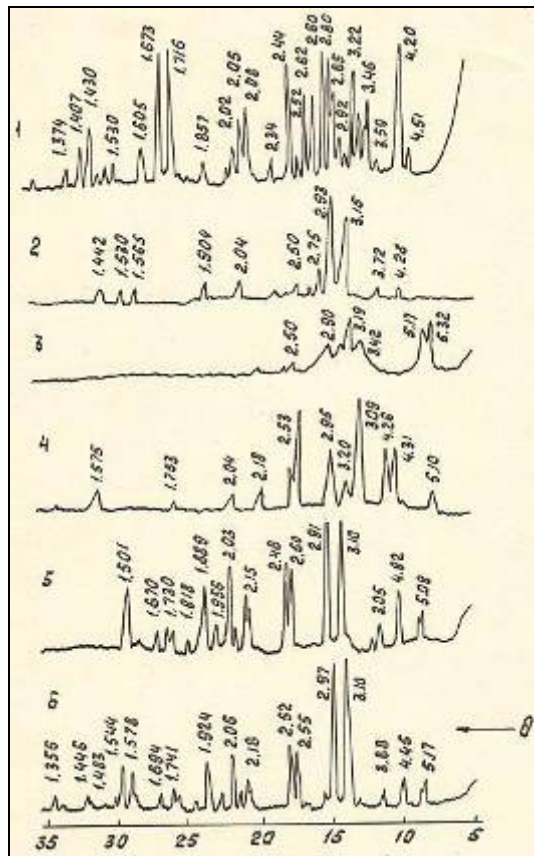 1
1.374
1.407
1.430
1.530
1.605
1.673
1.716
1.857
2.02
2.05
2.08
2.34
2.44
2.52
2.62
2.60
2.80
2.85
2.92
3.22
3.46
3.50
4.20
4.51
2
1.442
1.530
1.565
1.904
2.04
2.50
2.75
2.93
3.15
3.72
4.26
3
2.50
2.90
3.19
3.42
5.17
6.32
4
1.575
1.753
2.04
2.18
2.53
2.95
3.20
3.09
4.26
4.31
5.10
5
1.501
1.670
1.730
1.818
1.889
1.956
2.03
2.15
2.48
2.60
2.91
3.10
3.05
4.82
5.08
6
1.356
1.446
1.483
1.544
1.578
1.694
1.741
1.924
2.06
2.18
2.52
2.55
2.97
3.10
3.88
4.46
5.17
θ
35 30 25 20 15 10 5